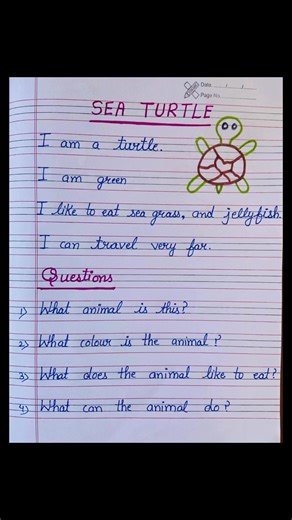 Date
Page No.
SEA TURTLE
I am a turtle.
I am green
I like to eat sea grass, and jellyfish.
I can travel very far.
Questions
1) What animal is this?
2) What colour is the animal?
3) What does the animal like to eat?
4) What can the animal do?